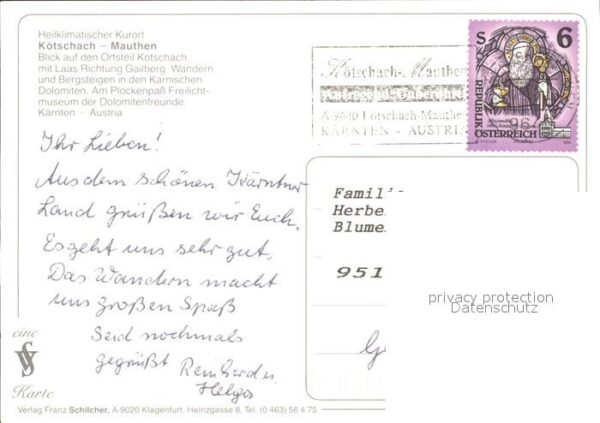 Heilklimatischer Kurort
Kötschach – Mauthen
Blick auf den Ortsteil Kötschach
mit Laas Richtung Gailberg. Wandern
und Bergsteigen in den Karnischen
Dolomiten. Am Plöckenpaß Freilicht-
museum der Dolomitenfreunde.
Kärnten – Austria
Kötschach-Mauthen
A-9640 Kötschach-Mauthen
KÄRNTEN - AUSTRIA
S 6
REPUBLIK
ÖSTERREICH
Ihr Lieben!
Aus dem schönen Kärntner
Land grüßen wir Euch.
Es geht uns sehr gut.
Das Wandern macht
uns großen Spaß
Seid nochmals
gegrüßt Reinhard u.
Helga
Famili
Herbe
Blume
951
privacy protection
Datenschutz
eine
VS
Karte
Verlag Franz Schilcher, A-9020 Klagenfurt, Heinzgasse 8, Tel. (0 463) 56 4 75